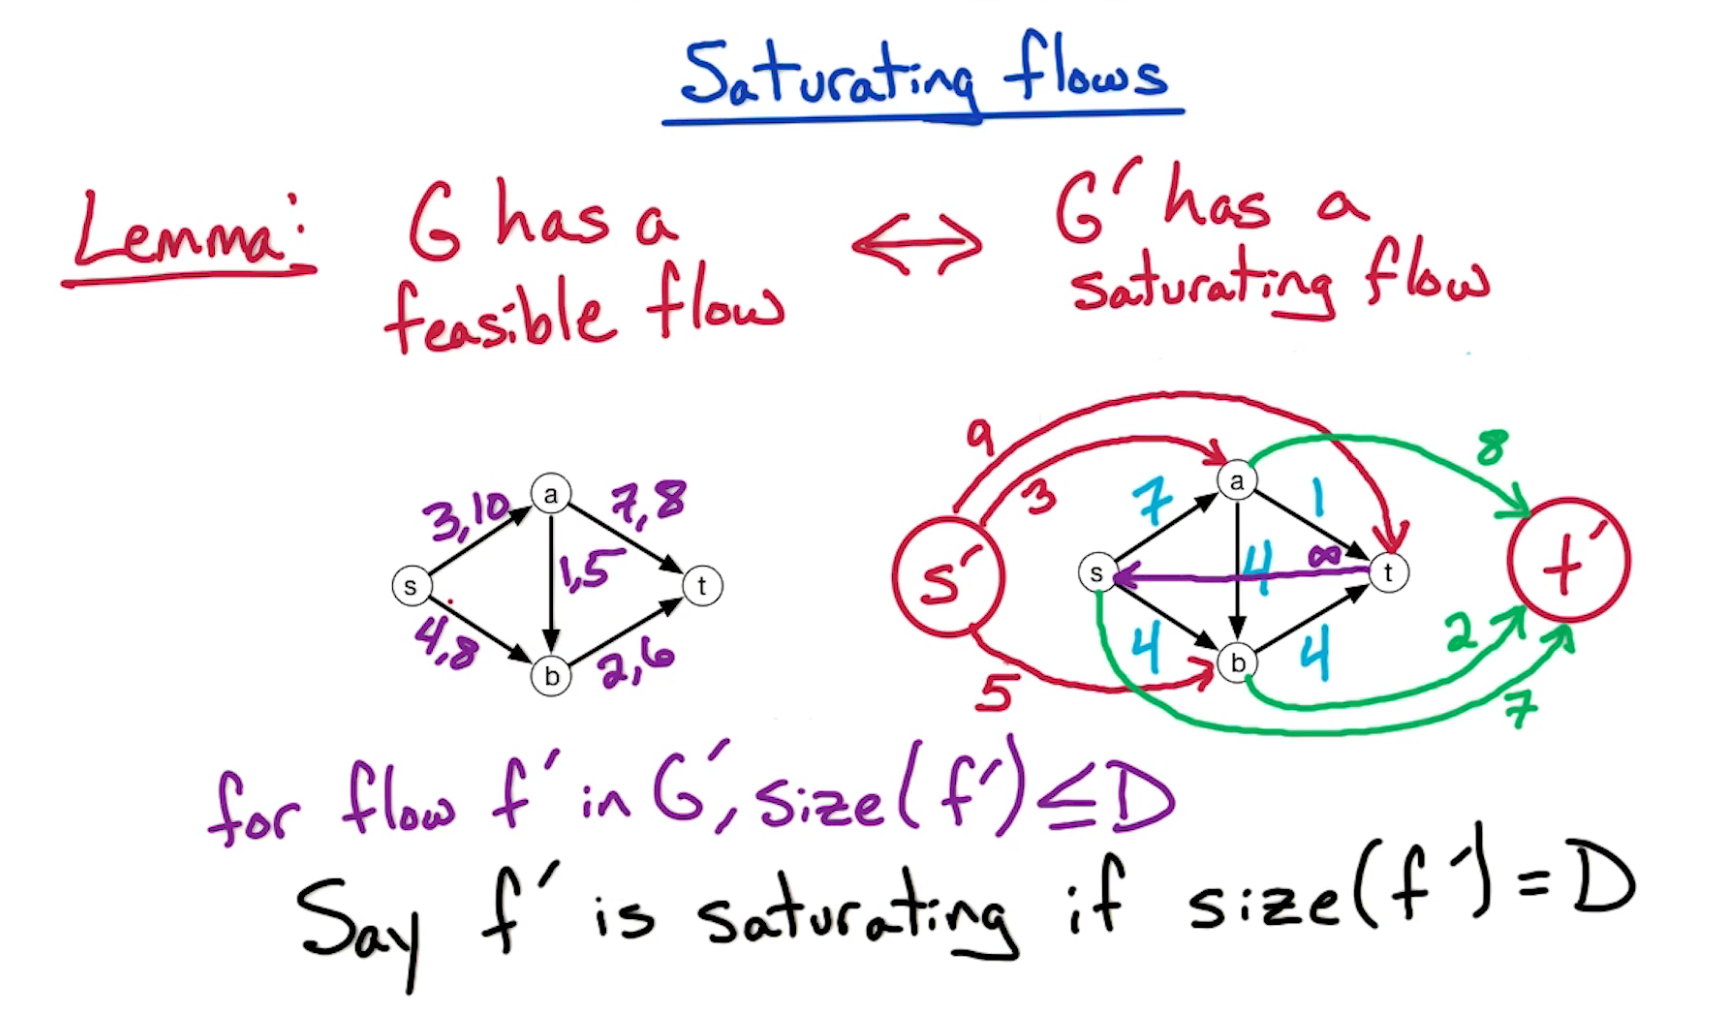 Saturating flows
Lemma: G has a feasible flow ⟺ G′ has a saturating flow
3,10
a
7,8
s
1,5
t
4,8
b
2,6
9
3
a
8
7
1
s′
s
4
∞
t
t′
4
b
4
2
5
7
for flow f′ in G′, size(f′) ≤ D
Say f′ is saturating if size(f′) = D